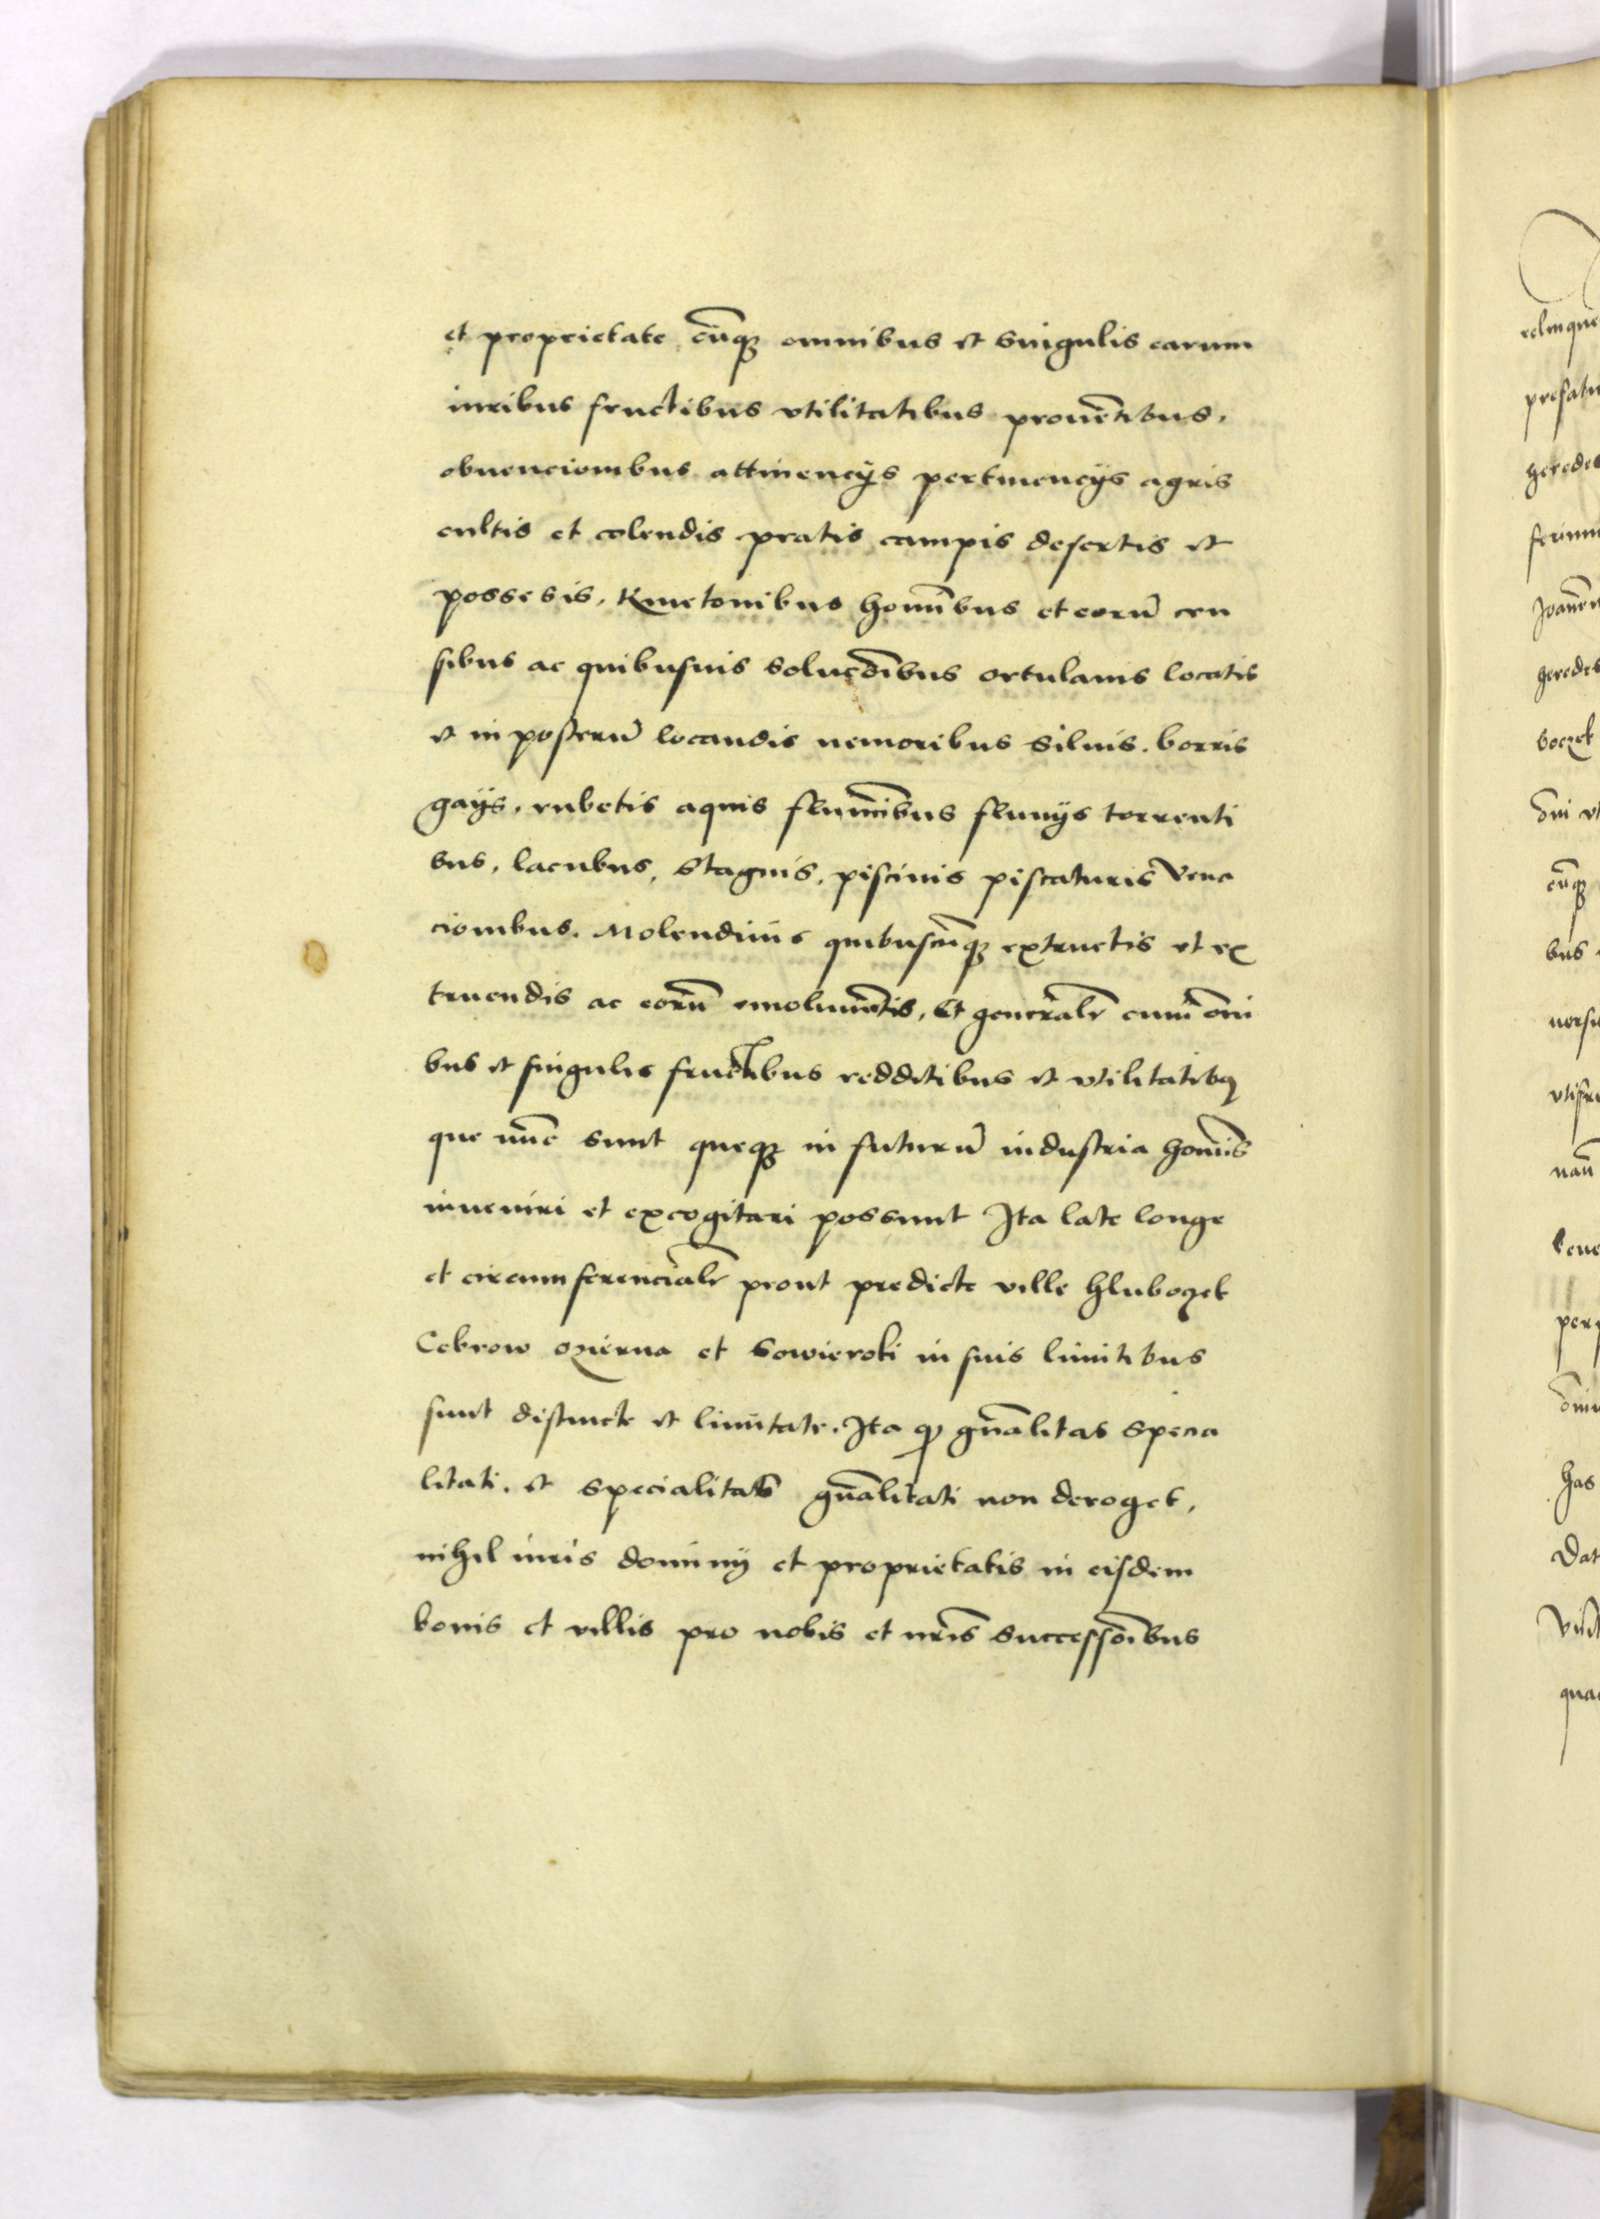 et proprietate cūq₃ omnibus et singulis earum
iuribus fructibus vtilitatibus prouētibus,
obuencionibus attinencÿs pertinencÿs agris
cultis et colendis pratis campis desertis et
possesis, Kmetonibus homībus et eorū cen
sibus ac quibusuis soluēdibus ortulanis locatis
et in posterū locandis nemoribus siluis. borris
gaÿs, rubetis aquis flumībus fluuÿs torrenti
bus, lacubus, stagnis, piscinis piscaturis Vena
cionibus. Molendinis quibuscūq₃ extructis et ex
truendis ac eorū emolumētis, Et generalr̄ cum oīni
bus et singulis fructibus redditibus et vtilitatibꝫ
que nūc sunt queq₃ in futurū industria homīs
inueniri et excogitari possunt Ita late longe
et circumferencialr̄ prout predicte ville hluboczek
Cebrow ozierna et Sowieroki in suis limitibus
sunt distincte et limitate. Ita ꝙ gn̄alitas specia
litati. et specialitas gn̄alitati non deroget,
nihil iuris dominÿ et proprietatis in eisdem
bonis et villis pro nobis et nr̄is successoībus
relinque
prefatu
heredes
heredes
cūq₃
bus
has
Dat